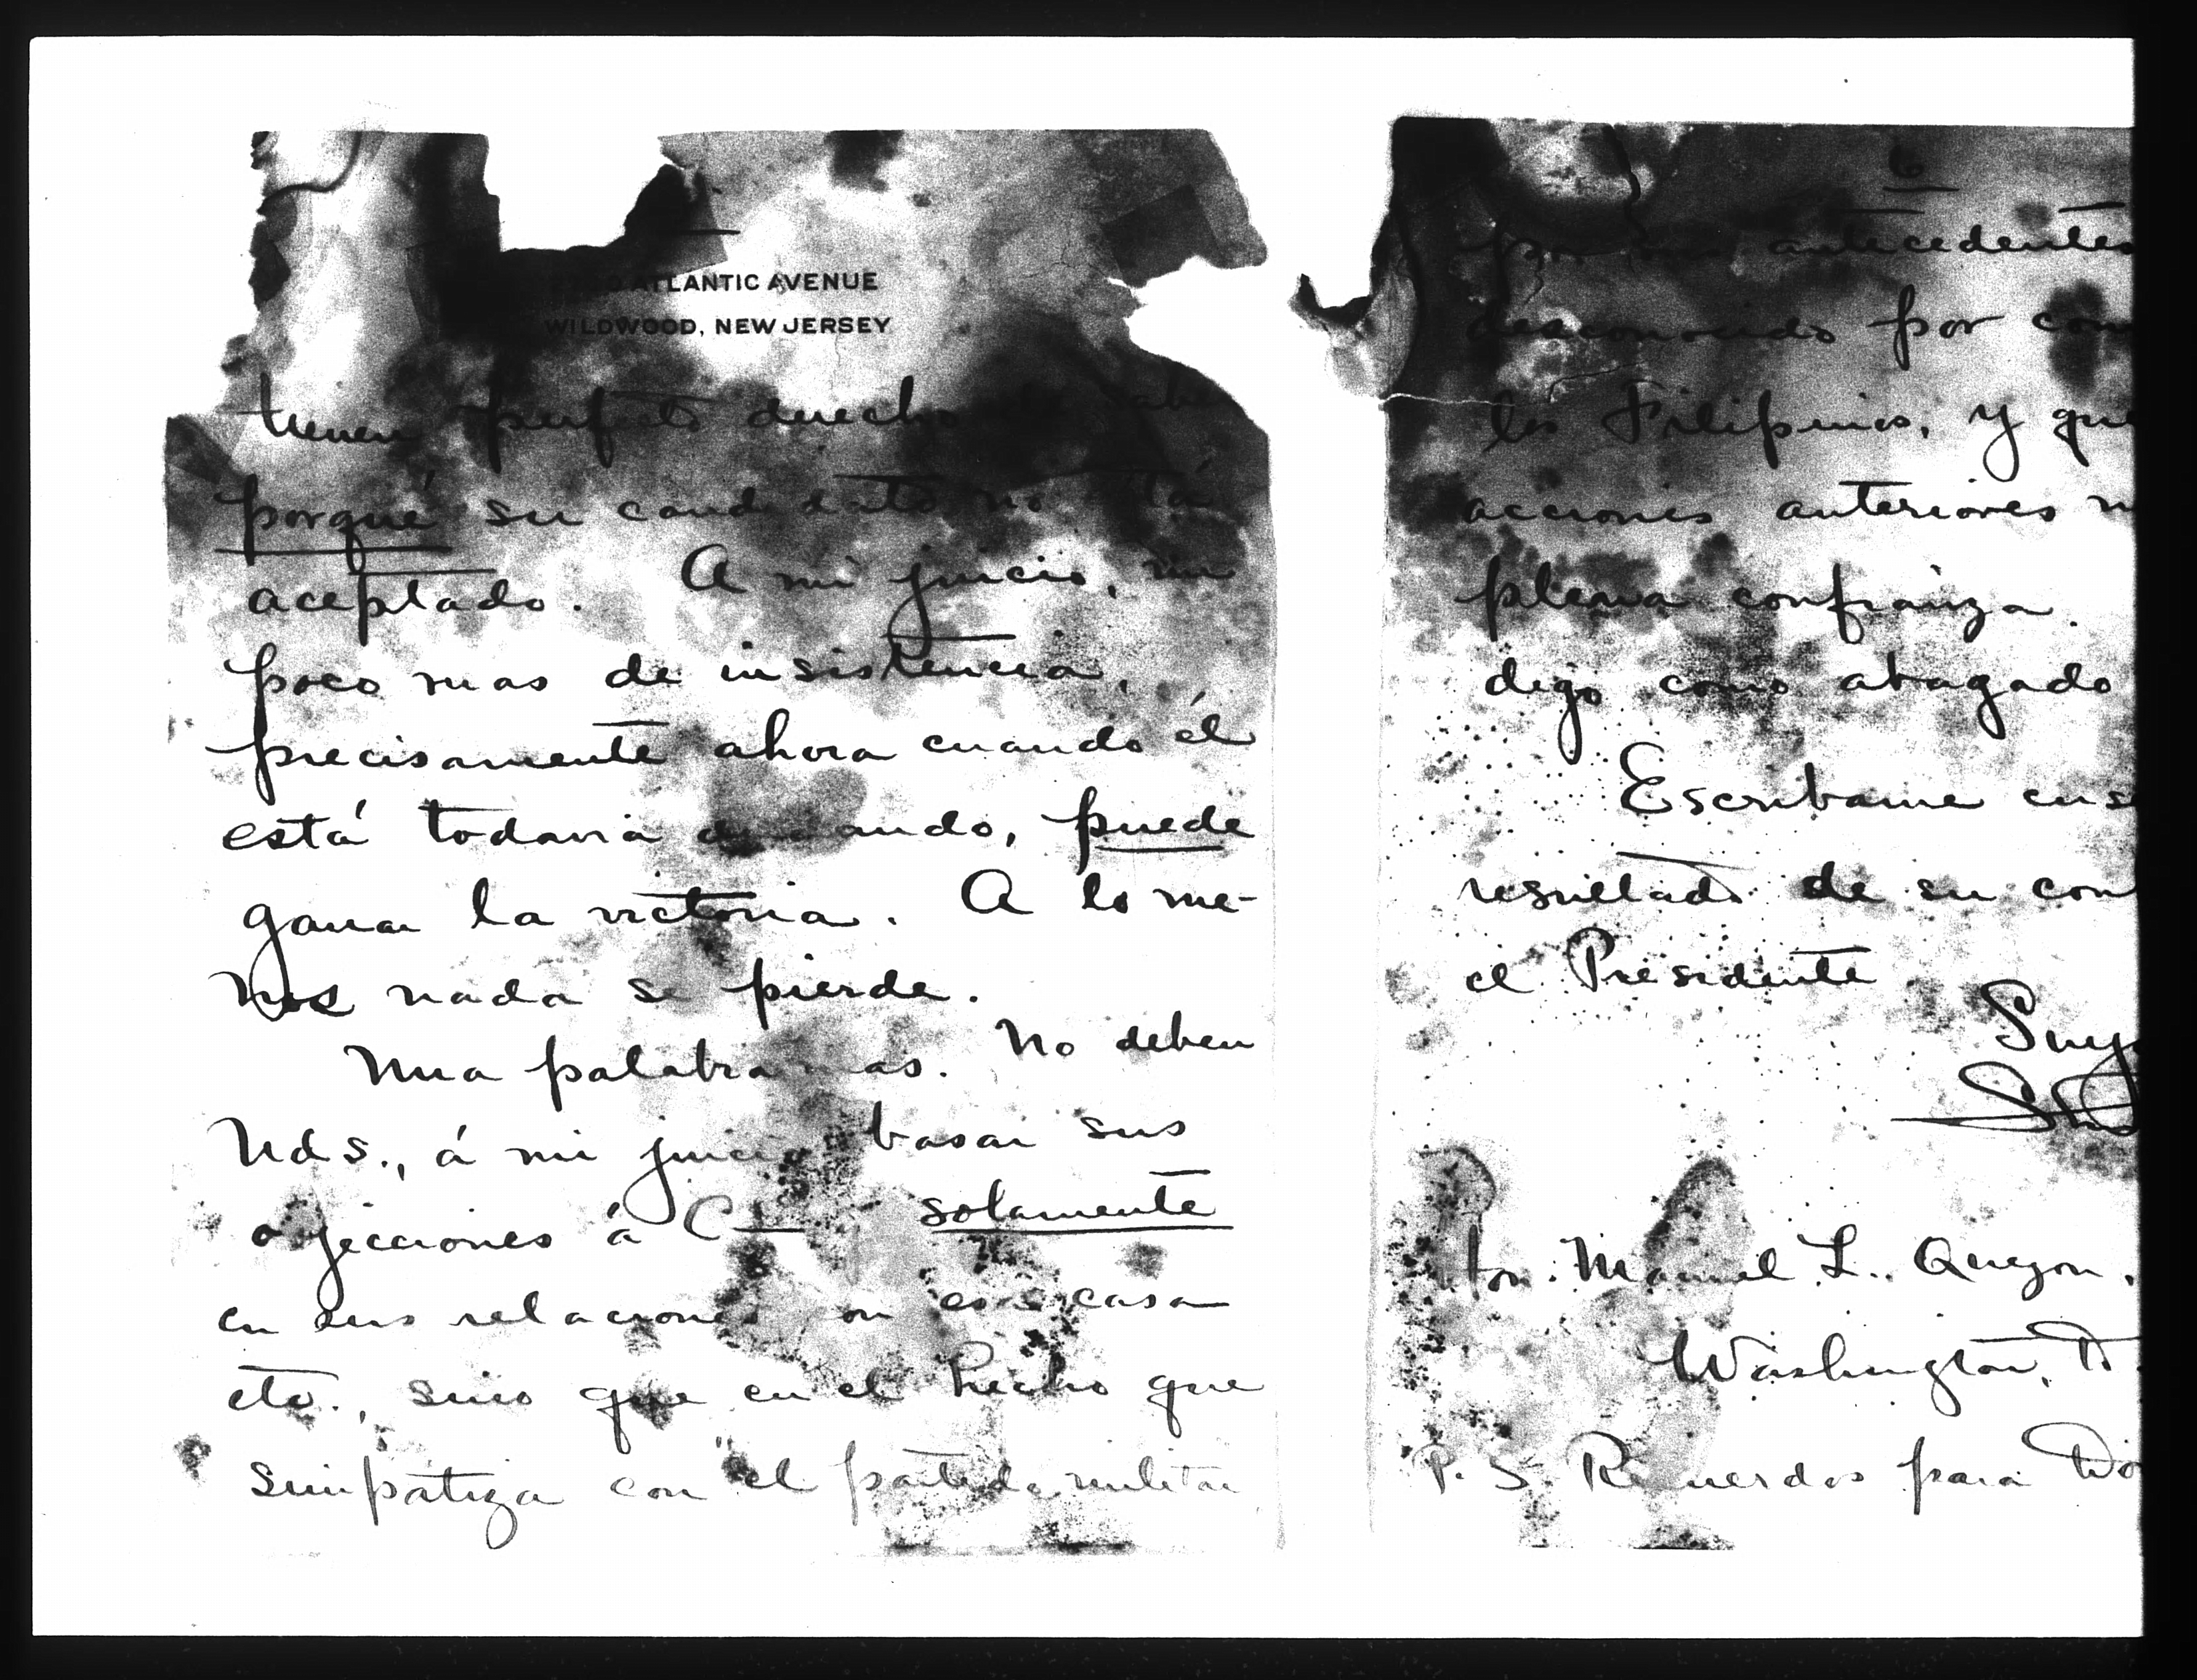 ATLANTIC AVENUE
WILDWOOD, NEW JERSEY
tienen perfecto derecho
porqué su candidato no está
aceptado. A mi juicio, un
poco mas de insistencia,
precisamente ahora cuando él
está todavia dudando, puede
ganar la victoria. A lo me-
nos nada se pierde.
Una palabra mas. No deben
Uds., á mi juicio basar sus
ojecciones á C— solamente
en sus relaciones con esa casa
etc., sino que en el hecho que
simpatiza con "el partido militar
6
por sus antecedentes
desconocido por com
los Filipinos, y que
acciones anteriores n
plena confianza.
digo como abogado
Escribame ense
resultado de su con
el Presidente
Suyo
Hon. Manuel L. Quezon.
Washington, D.
P. S. Recuerdos para